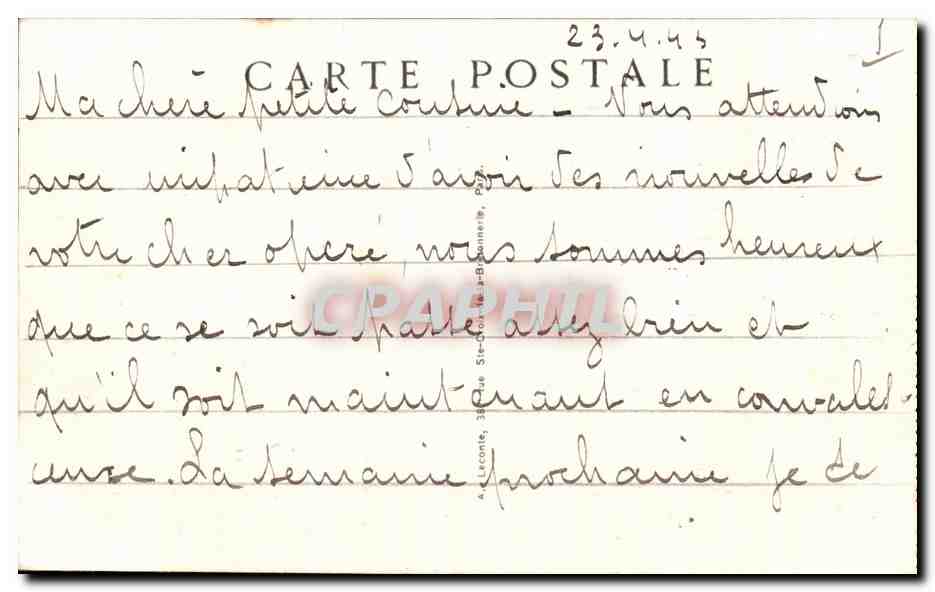 23.4.45
1
CARTE POSTALE
Ma chère petite cousine - Nous attendions
avec impatience d'avoir des nouvelles de
votre cher opéré, nous sommes heureux
que ce se soit passé assez bien et
qu'il soit maintenant en convales-
cense. La semaine prochaine je
A. Leconte, 38, rue Ste-Croix-de-la-Bretonnerie, Paris.
CPAPHIL